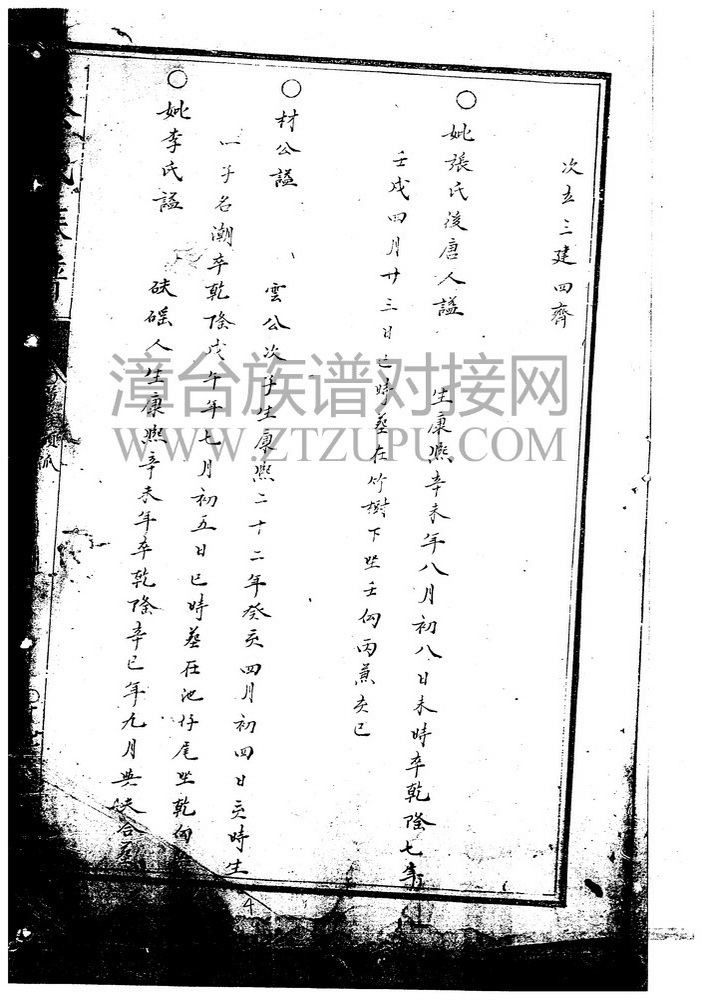 次立三建四齊
○妣張氏後唐人謚 生康熙辛未年八月初八日未時卒乾隆七年
壬戌四月廿三日巳時葬在竹樹下坐壬向丙兼亥巳
○材公謚 雲公次子生康熙二十二年癸亥四月初四日亥時生
一子名潮卒乾隆戊午年七月初五日巳時葬在池仔尾坐乾向
○妣李氏謚 人生康熙辛未年卒乾隆辛巳年九月與 合
族譜
漳台族谱对接网
WWW.ZTZUPU.COM
4